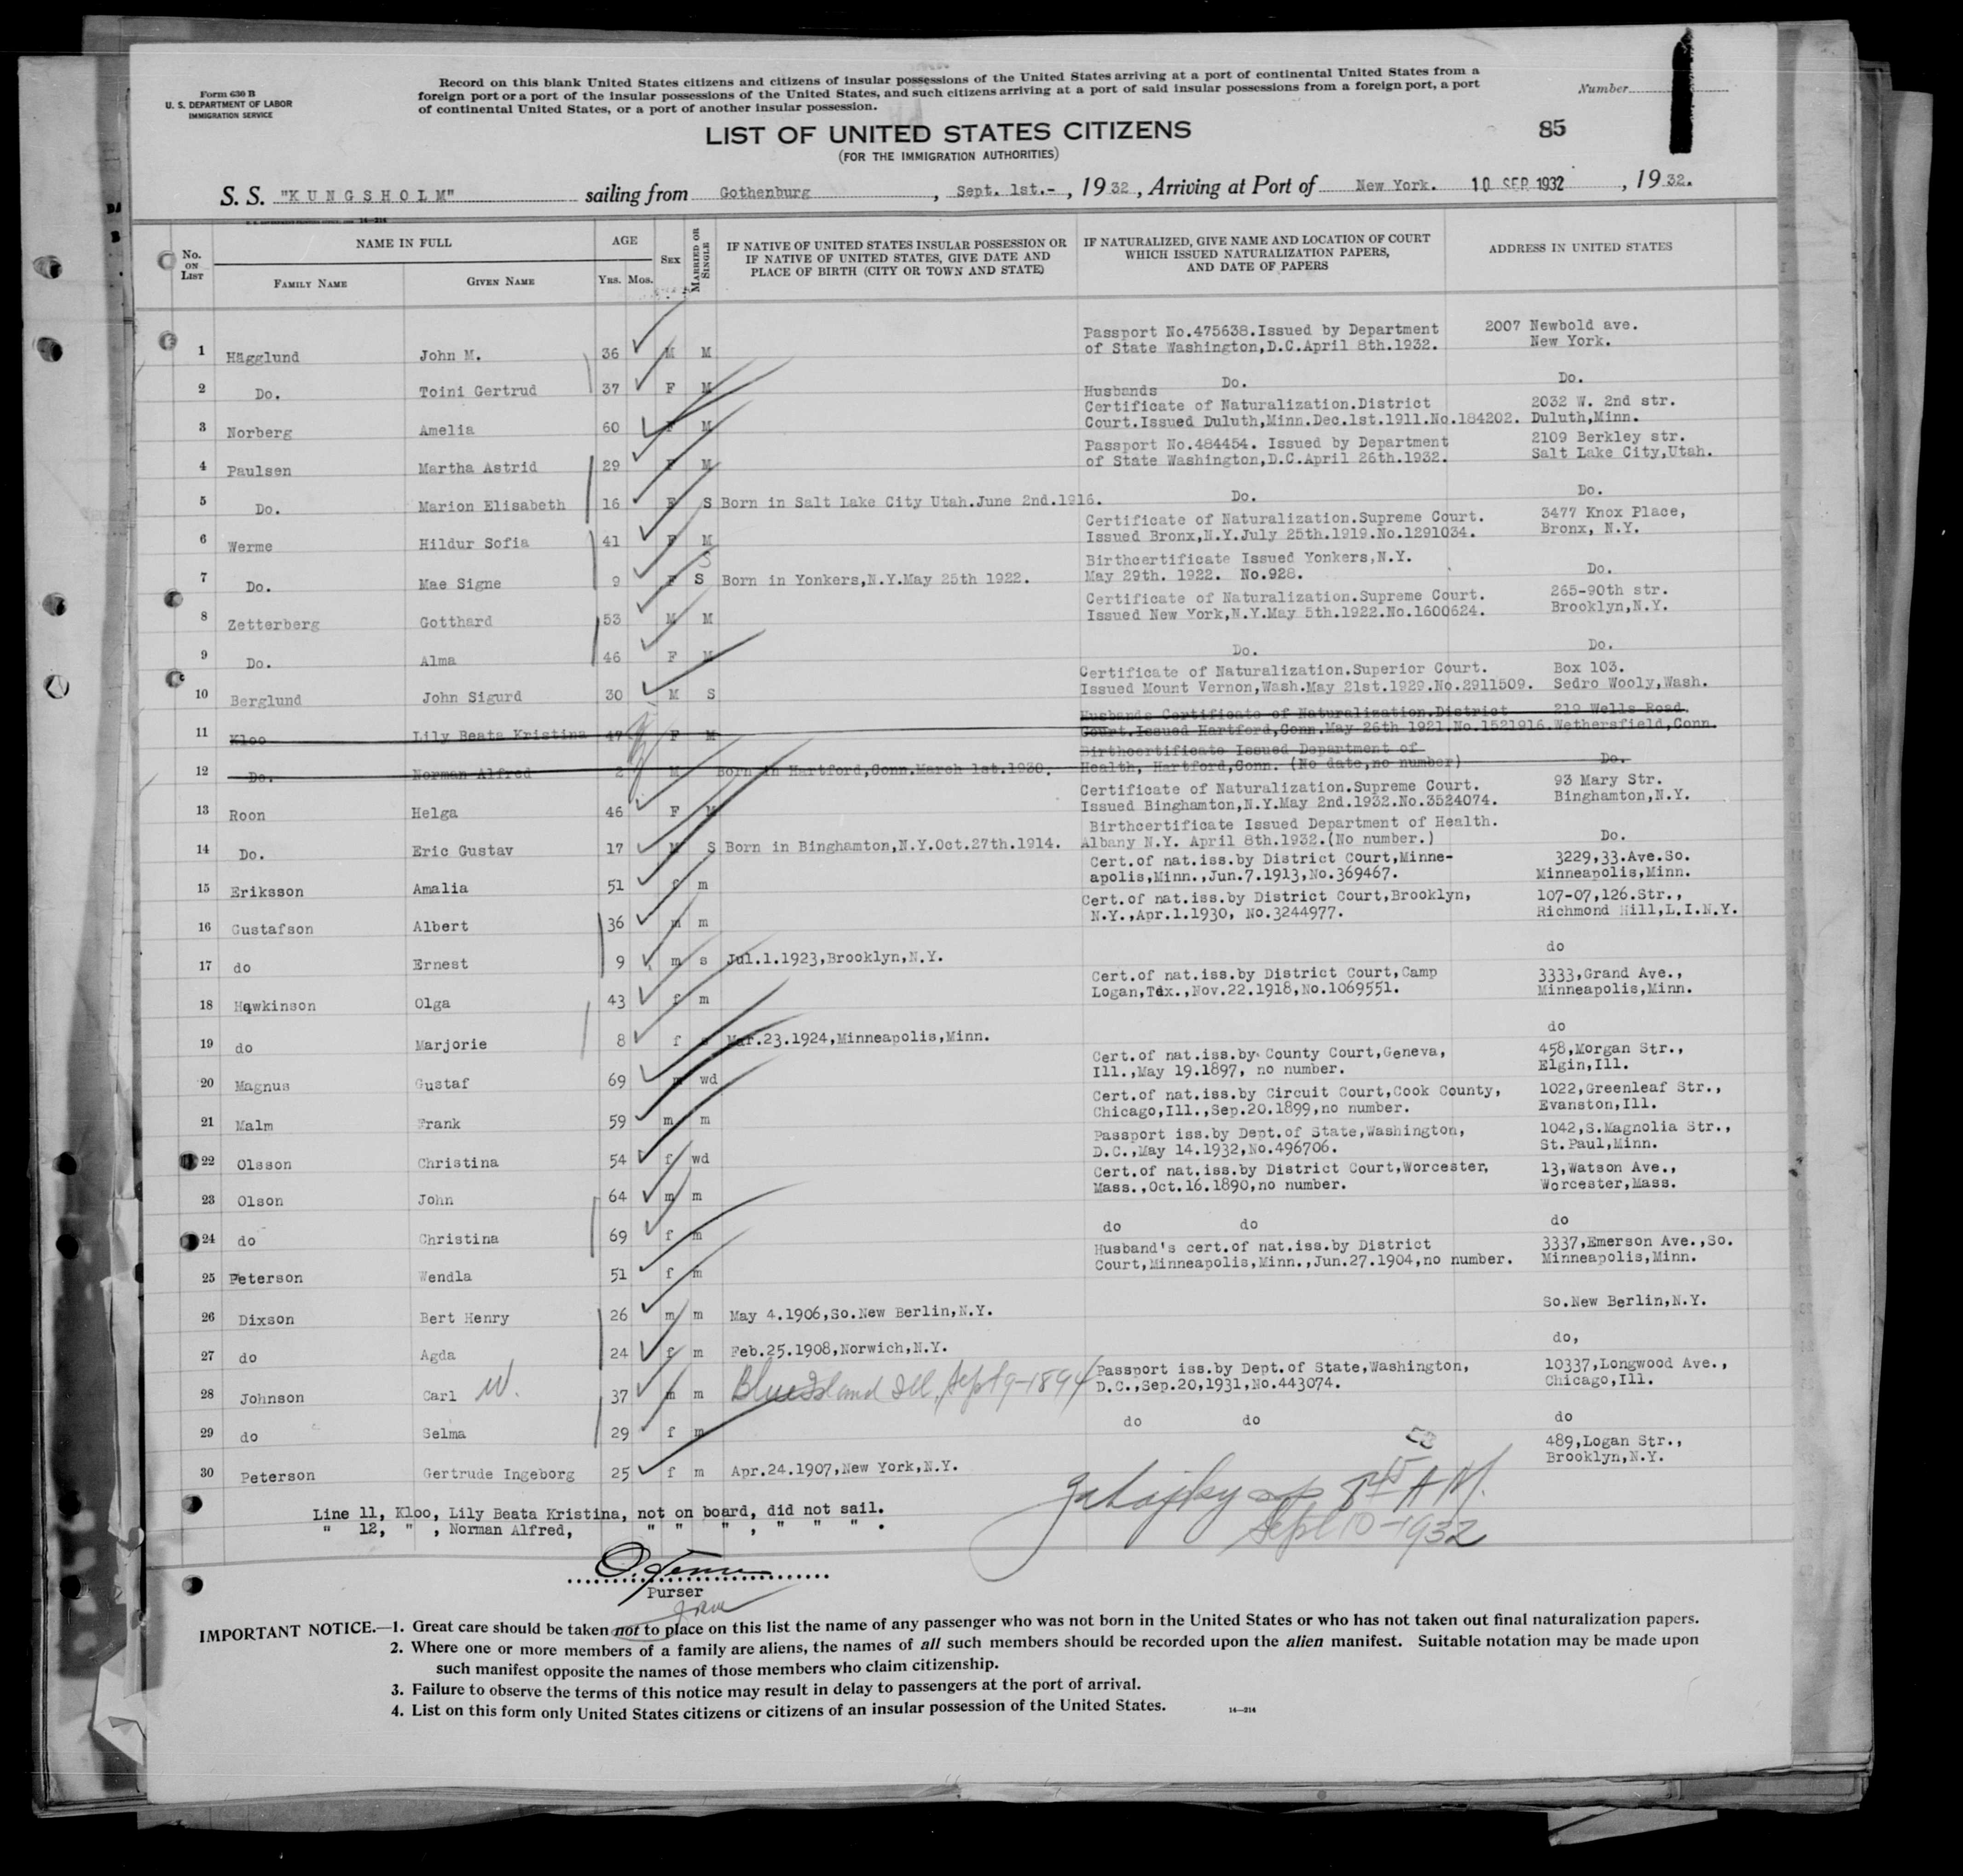 Form 630 B
U. S. DEPARTMENT OF LABOR
IMMIGRATION SERVICE
Record on this blank United States citizens and citizens of insular possessions of the United States arriving at a port of continental United States from a
foreign port or a port of the insular possessions of the United States, and such citizens arriving at a port of said insular possessions from a foreign port, a port
of continental United States, or a port of another insular possession.
Number
LIST OF UNITED STATES CITIZENS
85
(FOR THE IMMIGRATION AUTHORITIES)
S. S. "KUNGSHOLM" sailing from Gothenburg, Sept. 1st.-, 1932, Arriving at Port of New York. 10 SEP 1932, 1932.
No. ON LIST NAME IN FULL AGE SEX MARRIED OR SINGLE IF NATIVE OF UNITED STATES INSULAR POSSESSION OR IF NATIVE OF UNITED STATES, GIVE DATE AND PLACE OF BIRTH (CITY OR TOWN AND STATE) IF NATURALIZED, GIVE NAME AND LOCATION OF COURT WHICH ISSUED NATURALIZATION PAPERS, AND DATE OF PAPERS ADDRESS IN UNITED STATES
FAMILY NAME GIVEN NAME YRS. MOS.
Passport No.475638.Issued by Department 2007 Newbold ave.
1 Hägglund John M. 36 M M of State Washington,D.C.April 8th.1932. New York.
2 Do. Toini Gertrud 37 F M Do. Do.
Husbands
Certificate of Naturalization.District 2032 W. 2nd str.
3 Norberg Amelia 60 F M Court.Issued Duluth,Minn.Dec.1st.1911.No.184202. Duluth,Minn.
Passport No.484454. Issued by Department 2109 Berkley str.
4 Paulsen Martha Astrid 29 F M of State Washington,D.C.April 26th.1932. Salt Lake City,Utah.
5 Do. Marion Elisabeth 16 F S Born in Salt Lake City Utah.June 2nd.1916. Do. Do.
Certificate of Naturalization.Supreme Court. 3477 Knox Place,
6 Werme Hildur Sofia 41 F M Issued Bronx,N.Y.July 25th.1919.No.1291034. Bronx, N.Y.
Birthcertificate Issued Yonkers,N.Y.
7 Do. Mae Signe 9 F S S Born in Yonkers,N.Y.May 25th 1922. May 29th. 1922. No.928. Do.
Certificate of Naturalization.Supreme Court. 265-90th str.
8 Zetterberg Gotthard 53 M M Issued New York,N.Y.May 5th.1922.No.1600624. Brooklyn,N.Y.
9 Do. Alma 46 F M Do. Do.
Certificate of Naturalization.Superior Court. Box 103.
10 Berglund John Sigurd 30 M S Issued Mount Vernon,Wash.May 21st.1929.No.2911509. Sedro Wooly,Wash.
Husbands Certificate of Naturalization.District 219 Wells Road.
11 Kloo Lily Beata Kristina 47 F M Court.Issued Hartford,Conn.May 26th 1921.No.1521916.Wethersfield,Conn.
Birthcertificate Issued Department of
12 Do. Norman Alfred 2 M Born in Hartford,Conn.March 1st.1930. Health, Hartford,Conn. (No date,no number) Do.
Certificate of Naturalization.Supreme Court. 93 Mary Str.
13 Roon Helga 46 F M Issued Binghamton,N.Y.May 2nd.1932.No.3524074. Binghamton,N.Y.
Birthcertificate Issued Department of Health.
14 Do. Eric Gustav 17 M S Born in Binghamton,N.Y.Oct.27th.1914. Albany N.Y. April 8th.1932.(No number.) Do.
Cert.of nat.iss.by District Court,Minne- 3229,33.Ave.So.
15 Eriksson Amalia 51 f m apolis,Minn.,Jun.7.1913,No.369467. Minneapolis,Minn.
Cert.of nat.iss.by District Court,Brooklyn, 107-07,126.Str.,
16 Gustafson Albert 36 m m N.Y.,Apr.1.1930, No.3244977. Richmond Hill,L.I.N.Y.
17 do Ernest 9 m s Jul.1.1923,Brooklyn,N.Y. do
Cert.of nat.iss.by District Court,Camp 3333,Grand Ave.,
18 Hawkinson Olga 43 f m Logan,Tex.,Nov.22.1918,No.1069551. Minneapolis,Minn.
19 do Marjorie 8 f s Mar.23.1924,Minneapolis,Minn. do
Cert.of nat.iss.by County Court,Geneva, 458,Morgan Str.,
20 Magnus Gustaf 69 m wd Ill.,May 19.1897, no number. Elgin,Ill.
Cert.of nat.iss.by Circuit Court,Cook County, 1022,Greenleaf Str.,
21 Malm Frank 59 m m Chicago,Ill.,Sep.20.1899,no number. Evanston,Ill.
Passport iss.by Dept.of State,Washington, 1042,S.Magnolia Str.,
22 Olsson Christina 54 f wd D.C.,May 14.1932,No.496706. St.Paul,Minn.
Cert.of nat.iss.by District Court,Worcester, 13,Watson Ave.,
23 Olson John 64 m m Mass.,Oct.16.1890,no number. Worcester,Mass.
24 do Christina 69 f m do do do
Husband's cert.of nat.iss.by District 3337,Emerson Ave.,So.
25 Peterson Wendla 51 f m Court,Minneapolis,Minn.,Jun.27.1904,no number. Minneapolis,Minn.
26 Dixson Bert Henry 26 m m May 4.1906,So.New Berlin,N.Y. So.New Berlin,N.Y.
27 do Agda 24 f m Feb.25.1908,Norwich,N.Y. do,
Passport iss.by Dept.of State,Washington, 10337,Longwood Ave.,
28 Johnson Carl W. 37 m m Blue Island Ill, Sept 9-1894 D.C.,Sep.20,1931,No.443074. Chicago,Ill.
29 do Selma 29 f m do do do
489,Logan Str.,
30 Peterson Gertrude Ingeborg 25 f m Apr.24.1907,New York,N.Y. Brooklyn,N.Y.
Line 11, Kloo, Lily Beata Kristina, not on board, did not sail.
" 12, " , Norman Alfred, " " " , " " " .
A.M.
Sept 10-1932
Purser
IMPORTANT NOTICE.—1. Great care should be taken not to place on this list the name of any passenger who was not born in the United States or who has not taken out final naturalization papers.
2. Where one or more members of a family are aliens, the names of all such members should be recorded upon the alien manifest. Suitable notation may be made upon
such manifest opposite the names of those members who claim citizenship.
3. Failure to observe the terms of this notice may result in delay to passengers at the port of arrival.
4. List on this form only United States citizens or citizens of an insular possession of the United States.
14—214